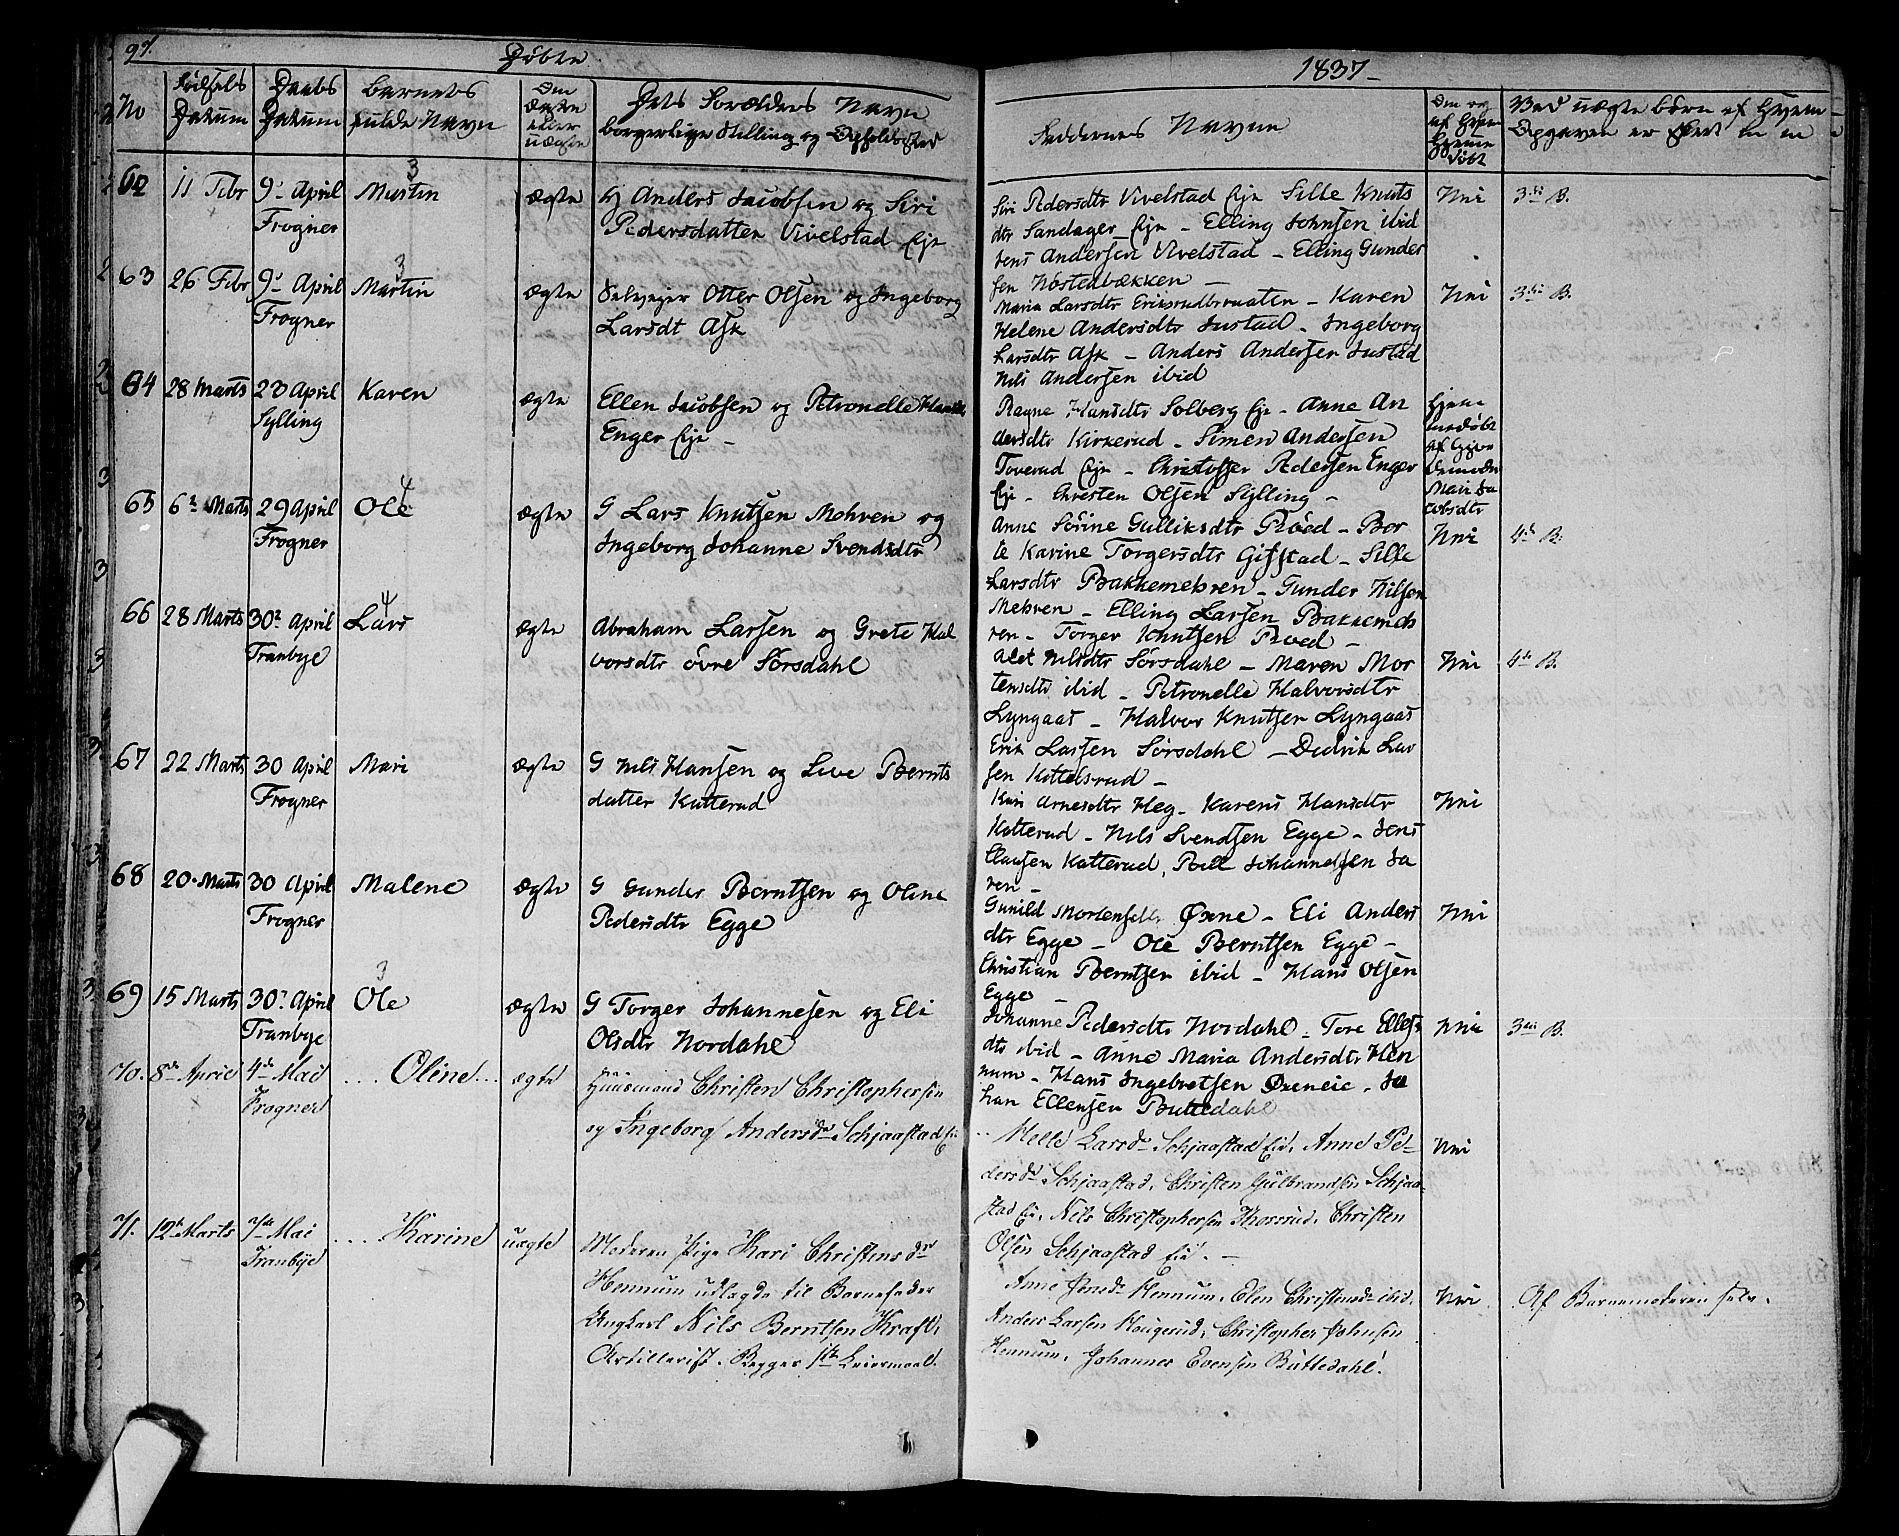 Døbte
1837
No
Fødsels Datum
Daabs Datum
Barnets fulde Navn
Den ægte eller uægte
Dets Forældres Navn
borgerlige Stilling og Opholdssted
Faddernes Navne
Ved uægte Børn af Hvem
Opgaven er skeet
62 11 Febr 9 April Frogner Martin ægte
Hj Anders Jacobsen og Siri
Pedersdatter Vivelstad Eje
Siri Pedersdtr Vivelstad Eje Sille Knuts
dtr Sandager Eje - Elling Johnsen ibid
Jens Andersen Vivelstad - Elling Gunder
sen Nøstebækken -
Nei 3die B.
63 26 Febr 9 April Frogner Martin ægte
Selvejer Otter Olsen og Ingeborg
Larsdt Ask
Maria Larsdtr Eriksrudbraaten - Karen
Helene Andersdtr Justad - Ingeborg
Larsdtr Ask - Anders Andersen Justad
Nils Andersen ibid
Nei 3die B.
64 28 Marts 23 April Sylling Karen ægte
Ellen Jacobsen og Petronelle Hansdtr
Enger Eje -
Ragne Hansdtr Solberg Eje - Anne An
dersdtr Kirkerud - Simen Andersen
Toverud Eje - Christoffer Pedersen Enger
Eje - Chresten Olsen Sylling -
Hjemmedøbt
af
Mari Ja
cobsdtr
65 6 Marts 29 April Frogner Ole 4 ægte
G Lars Knutsen Mehren og
Ingeborg Johanne Svendsdtr
Anne Sørine Gulliksdtr Røed - Ber
te Karine Torgersdtr Gifstad - Sille
Larsdtr Bakkemehren - Gunder Nilsen
Mehren - Elling Larsen Bakkemeh
ren - Torger Knutsen Røed -
Nei 4de B.
66 28 Marts 30 April Tranbye Lars 4 ægte
Abraham Larsen og Grete Hal
vorsdtr øvre Sørsdahl
Alet Nilsdtr Sørsdahl - Maren Mor
tensdtr ibid - Petronelle Halvorsdtr
Lyngaas - Halvor Knutsen Lyngaas
Erik Larsen Sørsdahl - Didrik Lar
sen Kittelsrud -
Nei 4de B.
67 22 Marts 30 April Frogner Mari ægte
G Nils Hansen og Live Bernts
datter Katterud
Kari Arnesdtr Heg - Karens Hansdtr
Katterud - Nils Svendsen Egge - Jens
Clausen Katterud, Peder Johannessen Ja
ren -
Nei
68 20 Marts 30 April Frogner Malene ægte
G Gunder Berntsen og Oline
Pedersdtr Egge
Gunild Mortensdtr Øxne - Eli Anders
dtr Egge - Ole Berntsen Egge -
Christian Berntsen ibid - Hans Olsen
Egge -
Nei
69 15 Marts 30 April Tranbye Ole 3 ægte
G Torger Johannesen og Eli
Olsdtr Nordahl
Johanne Pedersdtr Nordahl - Tore Ellefs
dtr ibid - Anne Maria Andersdtr Hen
num - Hans Ingebretsen Øxneie - Jo
han Ellensen Buttedahl
Nei 3die B.
70. 8de April 4de Mai Frogner Oline ægte
Huusmand Christen Christophersen
og Ingeborg Andersdr Schjaastad Eie
Melle Larsdr Schjaastad Eie, Anne Pe-
dersdr Schjaastad, Christen Gulbrandsen Schjaa-
stad Eie, Nils Christophersen Thorsrud, Christen
Olsen Schjaastad Eie. -
Nei
71. 12te Marts 7de Mai Tranbye Karine uægte
Moderen Pige Kari Christensdr
Hennum udlagde til Barnefader
Ungkarl Nils Berntsen Kraft,
Artillerist. Begges 1ste Leiermaal.
Anne Jensdr Hennum, Elen Christensdr ibid,
Anders Larsen Haugerud, Christopher Johnsen
Hennum, Johannes Evensen Buttedahl.
Nei. Af Barnemoderen selv.